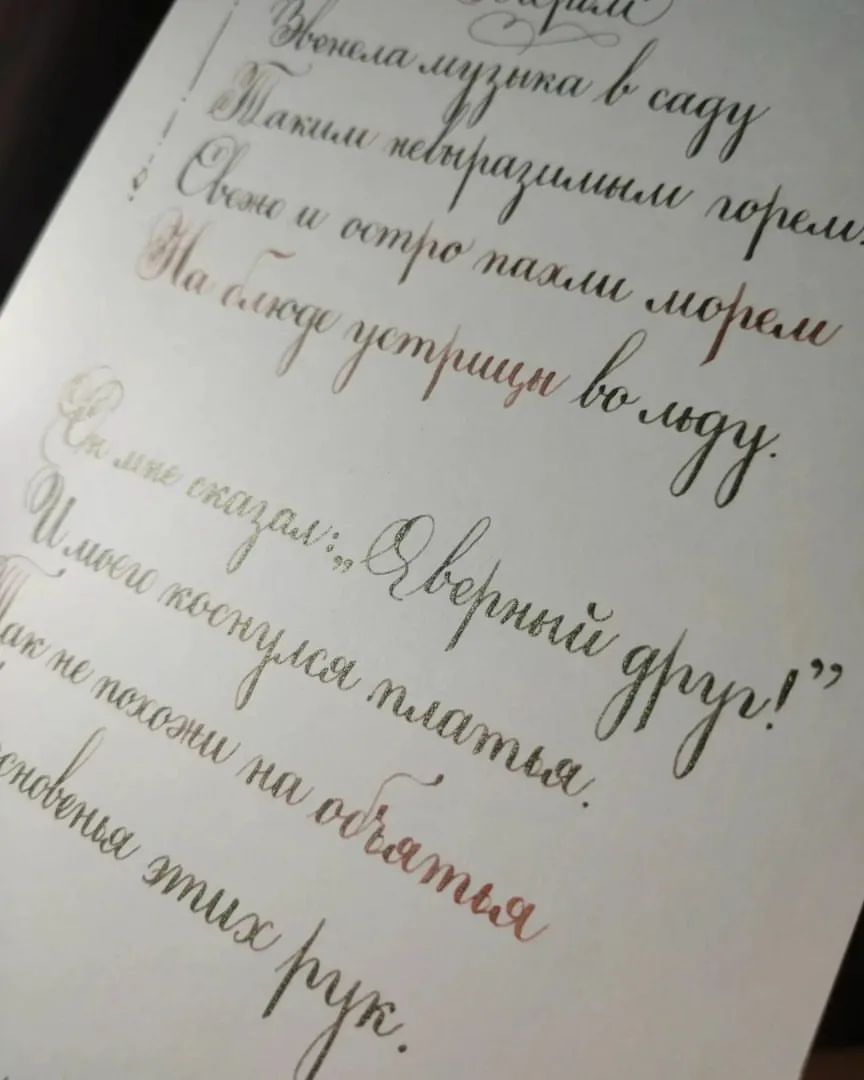 Звенела музыка в саду
Таким невыразимым горем.
Свежо и остро пахли морем
На блюде устрицы во льду.
Он мне сказал: „Я верный друг!”
И моего коснулся платья.
Так не похожи на объятья
этих рук.